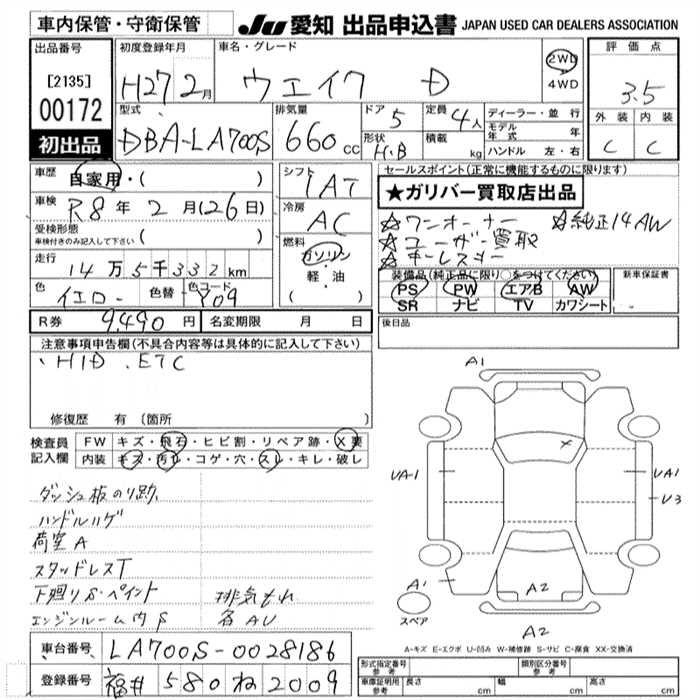 車内保管・守衛保管
JU 愛知 出品申込書 JAPAN USED CAR DEALERS ASSOCIATION
出品番号
[2135]
00172
初出品
初度登録年月
H27 2月
車名・グレード
ウェイク D
2WD
4WD
評価点
3.5
外装 内装
C C
型式
DBA-LA700S
排気量
660 cc
ドア
5
定員
4人
形状
H.B
積載
kg
ディーラー・並行
モデル年式 年
ハンドル 左・右
車歴
自家用・( )
車検
R8年 2月(26日)
受検形態
車検付きのみ記入して下さい ( )
走行
14万5千332km
色
イエロー
色替
色コード
Y09
シフト
IAT
冷房
AC
燃料
ガソリン
・軽・油
( )
セールスポイント(正常に機能するものに限ります)
★ガリバー買取店出品
☆ワンオーナー ☆純正14AW
☆ユーザー買取
☆キーレスキー
装備品(純正品に限り○をつけてください)
PS PW エアB AW
SR ナビ TV カワシート
新車保証書
後日品
R券 9,490円 名変期限 月 日
注意事項申告欄(不具合内容等は具体的に記入して下さい)
HID.ETC
修復歴 有(箇所
検査員記入欄
FW キズ・飛石・ヒビ割・リペア跡・X要
内装 キズ・汚れ・コゲ・穴・スレ・キレ・破レ
ダッシュ板のり跡
ハンドルハゲ
荷室A
スタッドレスT
下廻りS・ペイント 排気もれ
エンジンルーム内S 各AU
A1
UA-1
UA1
U3
A1
A2
スペア
A2
A-キズ E-エクボ U-凹み W-補修跡 S-サビ C-腐食 XX-交換済
車台番号 LA700S-0028186
登録番号 福井 580 ね 2009
形式指定番号 参考
類別区分番号 参考
車庫証明用 参考 長さ cm 幅 cm 高さ cm